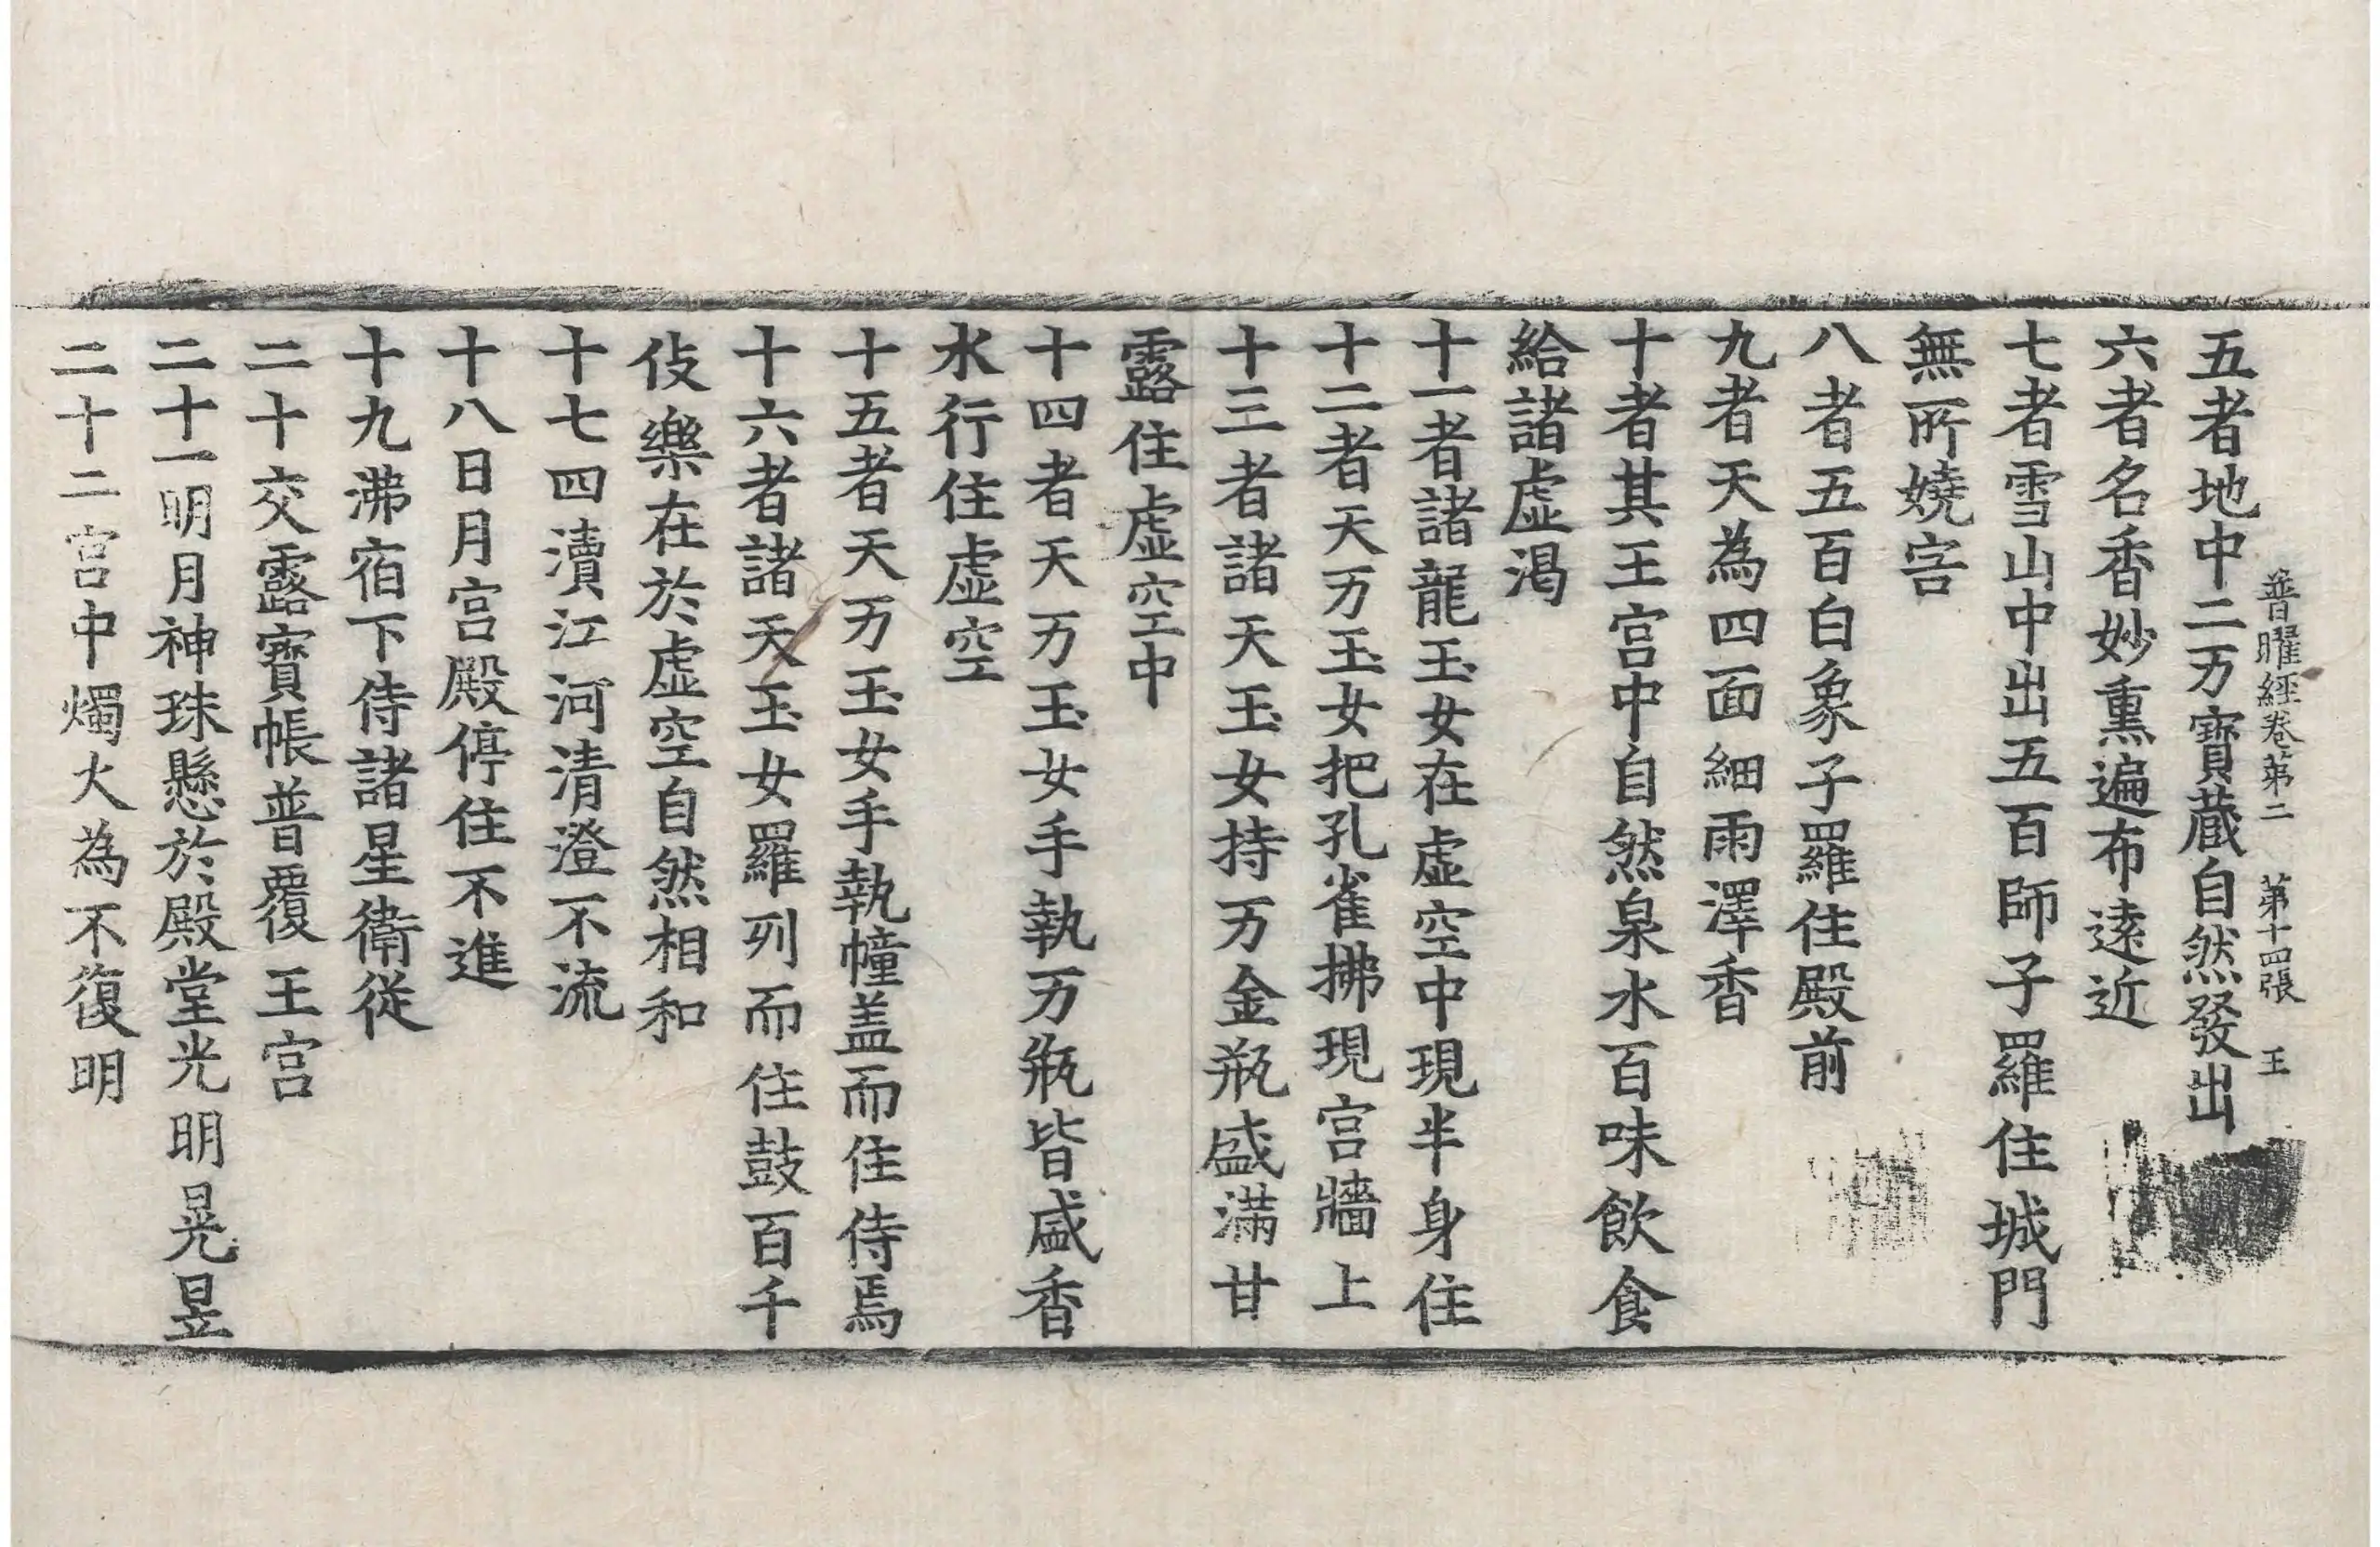 普曜經卷第二　第十四張　王
五者地中二万寶蔵自然發出
六者名香妙熏遍布遠近
七者雪山中出五百師子羅住城門
無所嬈害
八者五百白象子羅住殿前
九者天為四面細雨澤香
十者其王宫中自然泉水百味飲食
給諸虚渴
十一者諸龍玉女在虚空中現半身住
十二者天万玉女把孔雀拂現宫牆上
十三者諸天玉女持万金瓶盛滿甘
露住虚空中
十四者天万玉女手執万瓶皆盛香
水行住虚空
十五者天万玉女手執幢盖而住侍焉
十六者諸天玉女羅列而住鼓百千
伎樂在於虚空自然相和
十七四瀆江河清澄不流
十八日月宫殿停住不進
十九沸宿下侍諸星衛從
二十交露寶帳普覆王宫
二十一明月神珠懸於殿堂光明晃昱
二十二宫中燭火為不復明